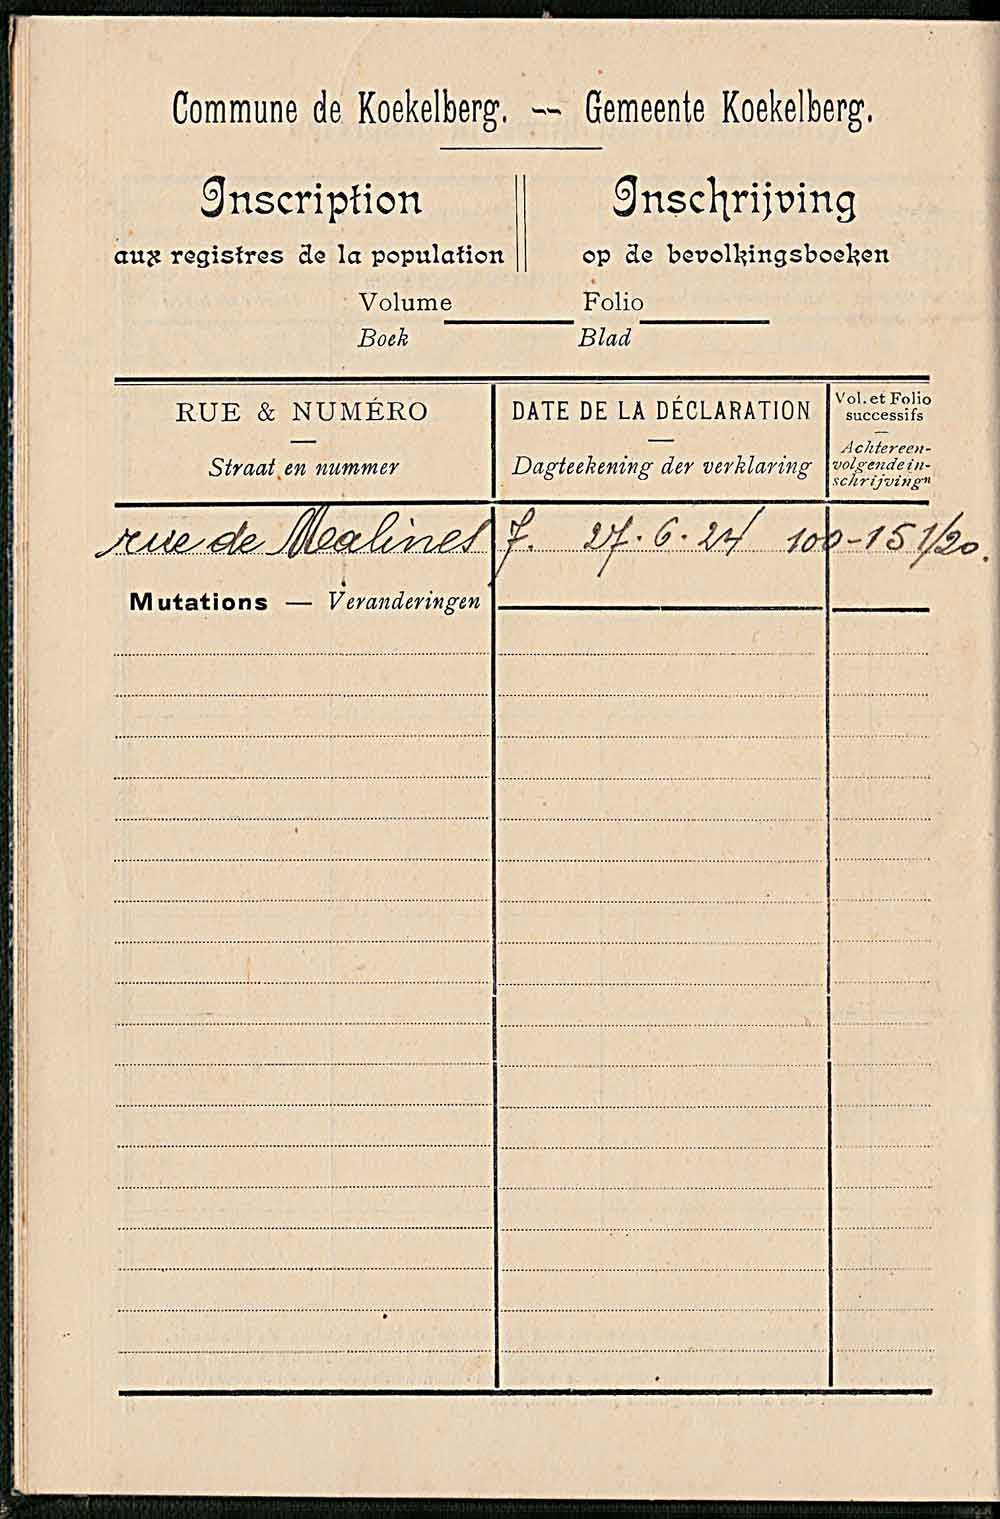 Commune de Koekelberg. — Gemeente Koekelberg.
Inscription
aux registres de la population
Inschrijving
op de bevolkingsboeken
Volume Folio
Boek Blad
RUE & NUMÉRO
Straat en nummer
DATE DE LA DÉCLARATION
Dagteekening der verklaring
Vol. et Folio
successifs
Achtereen-
volgende in-
schrijvingⁿ
rue de Mealines 7. 27.6.24 100-151/20.
Mutations — Veranderingen